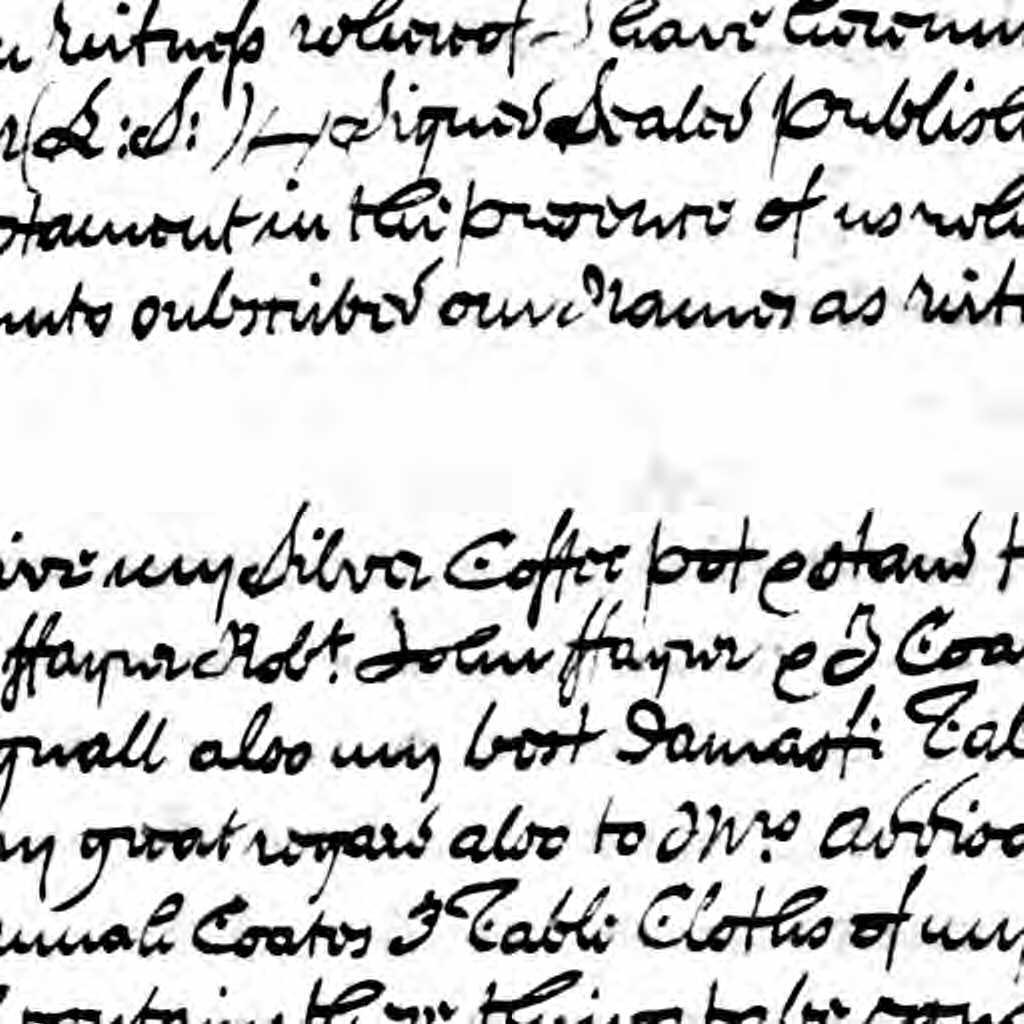 witness whereof I have hereun
(L:S:) Signed Sealed publish
stament in the presence of us who
unto subscribed our Names as witn
ive my Silver Coffee pot & stand t
ffayrer Robt. John ffayrer & J Coa
quall also my best Damask Tabl
my great regard also to Mrs.
annah Coates 3 Table Cloths of my